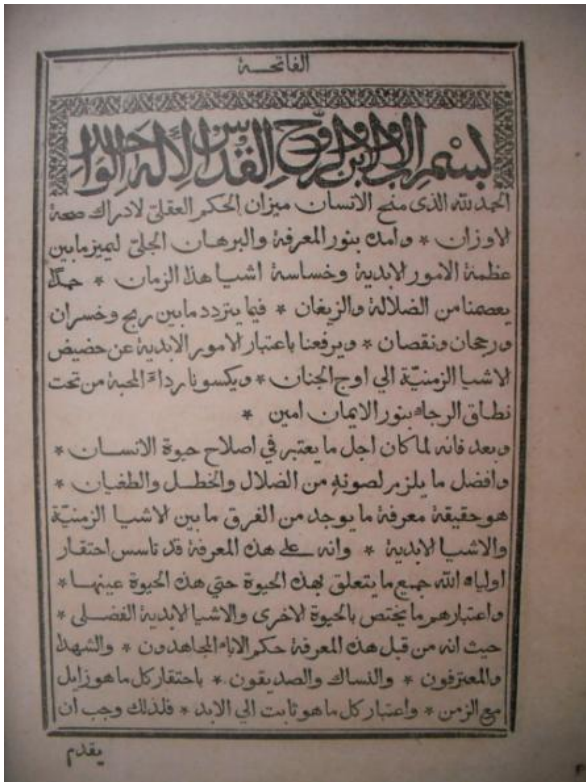 الفاتحــة
بسم الاب والابن والروح القدس الاله الواحد
الحمد لله الذى منح الانسان ميزان الحكم العقلي لادراك صحة
الاوزان * وامده بنور المعرفة والبرهان الجلي ليميز مابين
عظمة الامور الابدية وخساسة اشيا هذا الزمان * حمدًا
يعصمنا من الضلالة والزيغان * فيما يتردد مابين ربح وخسران
ورجحان ونقصان * ويرفعنا باعتبار الامور الابدية عن حضيض
الاشيا الزمنيّة الي اوج الجنان * ويكسونا رداء المحبة من تحت
نطاق الرجاء بنور الايمان امين *
وبعد فانه لما كان اجل ما يعتبر في اصلاح حيوة الانسان *
وافضل ما يلزم لصونهِ من الضلال والخطل والطغيان *
هو حقيقة معرفة ما يوجد من الفرق ما بين الاشيا الزمنيّة
والاشيا الابدية * وانه علي هذه المعرفة قد تاسس احتقار
اولياء الله جميع ما يتعلق بهذه الحيوة حتي هذه الحيوة عينهـا *
واعتبارهم ما يختص بالحيوة الاخرى والاشيا الابدية الفضلي *
حيث انه من قبل هذه المعرفة حكم الاباء المجاهدون * والشهدا
والمعترفون * والنساك والصديقون * باحتقار كل ما هو زايل
مع الزمن * واعتبار كل ما هو ثابت الي الابد * فلذلك وجب ان
يقدم